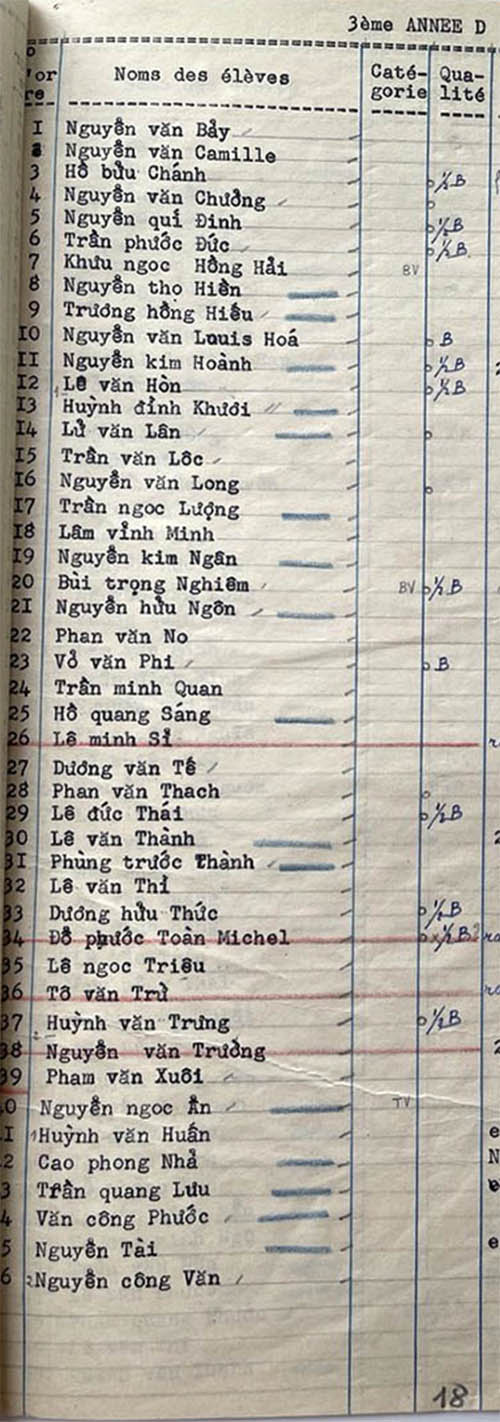 3ème ANNEE D
Noms des élèves Caté- Qua-
gorie lité
I Nguyễn văn Bảy
2 Nguyễn văn Camille
3 Hồ bửu Chánh ½ B
4 Nguyễn văn Chưởng
5 Nguyễn quí Đinh ½ B
6 Trần phước Đức ½ B
7 Khưu ngọc Hồng Hải BV
8 Nguyễn thọ Hiền
9 Trương hồng Hiếu
I0 Nguyễn văn Louis Hoá B
II Nguyễn kim Hoành ½ B
I2 Lê văn Hòn ½ B
I3 Huỳnh đỉnh Khươi
I4 Lử văn Lân
I5 Trần văn Lôc
I6 Nguyễn văn Long
I7 Trần ngoc Lượng
I8 Lâm vỉnh Minh
I9 Nguyễn kim Ngân
20 Bùi trọng Nghiêm BV ½ B
2I Nguyễn hửu Ngôn
22 Phan văn No
23 Vỏ văn Phi B
24 Trần minh Quan
25 Hồ quang Sáng
26 Lê minh Sỉ
27 Dương văn Tế
28 Phan văn Thach
29 Lê đức Thái ½ B
30 Lê văn Thành
3I Phùng trước Thành
32 Lê văn Thỉ
33 Dương hửu Thức ½ B
34 Đỗ phước Toàn Michel ½ B
35 Lê ngoc Triêu
36 Tô văn Trử
37 Huỳnh văn Trưng ½ B
38 Nguyễn văn Trưởng
39 Pham văn Xuôi
0 Nguyễn ngoc Ẩn TV
I Huỳnh văn Huấn
2 Cao phong Nhả
3 Trần quang Lưu
4 Văn công Phước
5 Nguyễn Tài
6 Nguyễn công Văn
18